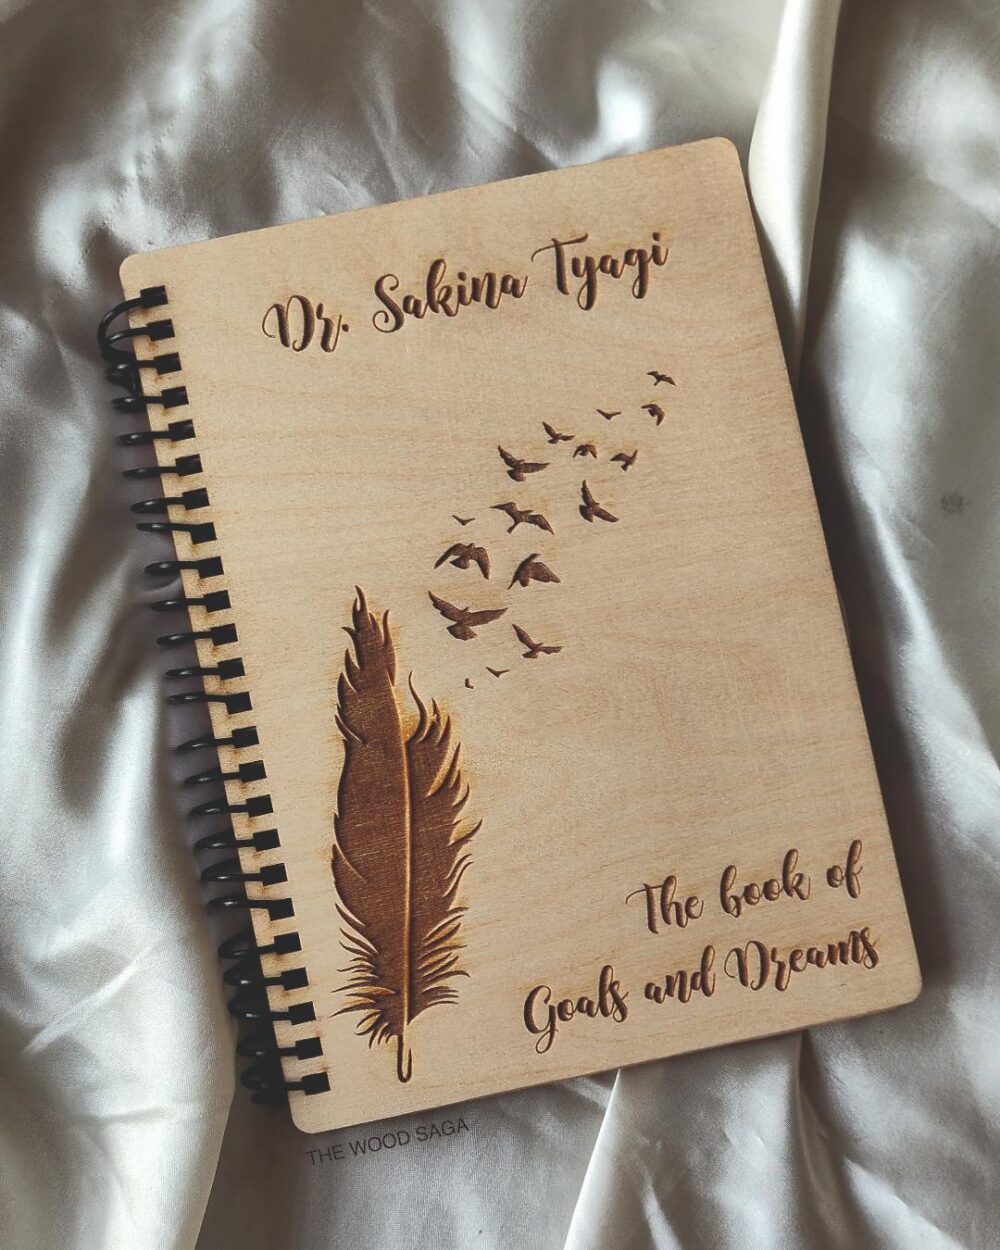 Dr. Sakina Tyagi
The book of
Goals and Dreams
THE WOOD SAGA